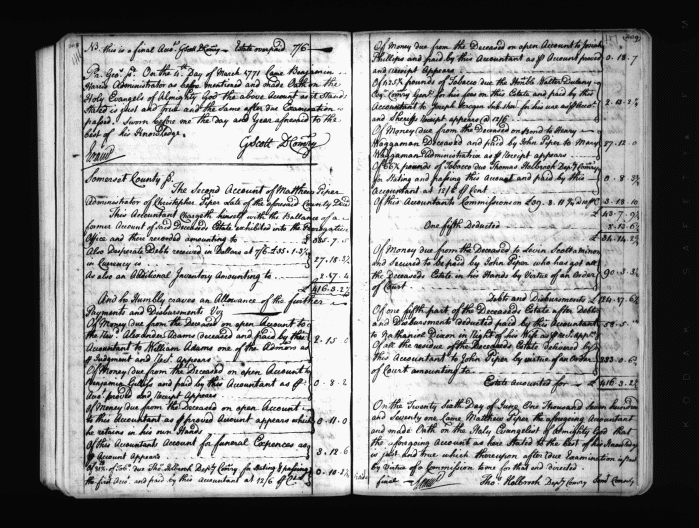 N.B. this is a final Acct. GScott D Comry Estate overpaid 7/6
Pr. Geos. ps. On the 4th Day of March 1771 Came Benjamin
Harris Administrator as before mentioned and made Oath on the
Holy Evangels of Almighty God the above Account as it stands
Stated is just and true and the Same after due Examination
passed. Sworn before me the day and Year aforesaid to the
best of his Knowledge.
Exam'd GScott D Comry
Somerset County ps.
The Second Account of Matthew Piper
Administrator of Christopher Piper late of the aforesaid County Decd
This Accountant Chargeth himself with the Ballance of a
former Account of said Deceaseds Estate exhibited into the Prerogative
Office and there recorded amounting to £ 385.7.5
Also Desperate Debts received in Dollars at 7/6
in Currency is 27.18
As also an Additional Inventory Amounting to
£ 416.3.2
And he Humbly craves an Allowance of the further
Payments and Disbursments Viz
Of Money due from the Deceased on open Account to
the Revd. Alexander Adams deceased and paid by this
Accountant to William Adams one of the Admors as
P Judgment and Rect. appears 2.15.0
Of Money due from the Deceased on open Account to
Benjamin and paid by this Accountant as P
Acct. proved and receipt Appears 0.8.2
Of Money due from the Deceased on open Account
to this Accountant as P proved Account appears which
he retains in his own Hands 0.11.0
Of this Accountant Account for funeral Expences as
P Account Appears 3.12.6
Thos. Holbrook Depty Comry for Stating & passing
the first Acct. and paid by this Accountant at 12/6 P Ct. 0.10
Of Money due from the Deceased on open Account to Josiah
Phillips and paid by this Accountant as P Account proved
and receipt Appears 0.18.7
pounds of Tobacco due the Honble Walter Dulany
Esqr. Comry Genl. for his fees on this Estate and paid by this
Accountant to Joseph Sub Sheriff for his use as P Acct.
and Sheriffs receipt appears @ 12/6 2.13
Of Money due from the Deceased on Bond to Henry
Waggaman Deceased and paid by John Piper to Mary
Waggaman Administratrix as P receipt appears 27.12.0
pounds of Tobacco due Thomas Holbrook Depty Comry
for Stating and passing this Account and paid by this
Accountant at 12/6 P Cent 0.8
Of this Accountants Commissions on £39.3.11 at 10 P Ct. 3.18.10
£ 43.7.9
One fifth Deducted 8.13.6
£ 34.14.2
Of Money due from the Deceased to Levin
and Secured to be paid by John Piper who has got all
the Deceaseds Estate in his Hands by Virtue of an Order
of Court 90.3
Debts and Disbursments £ 124.17.6
Of one fifth part of the Deceaseds Estate after Debts
and Disbursments deducted paid by this Accountant
to Nathaniel Dixon in Right of his Wife as P rect. appears 58.5
Of all the residue of the Deceaseds Estate delivered by
this Accountant to John Piper by virtue of an Order
of Court amounting to 233.0.6
Estate accounted for £ 416.3.2
On the Twenty Sixth Day of June One Thousand Seven hundred
and Seventy one Came Matthew Piper the aforegoing Accountant
and made Oath on the Holy Evangelist of Almighty God that
the aforegoing Account as here Stated to the best of his Knowledge
is just and true which thereupon after due Examination is passed
by Virtue of a Commission to me for that end directed.
final Exam'd Thos. Holbrook Depty Comry Somt County